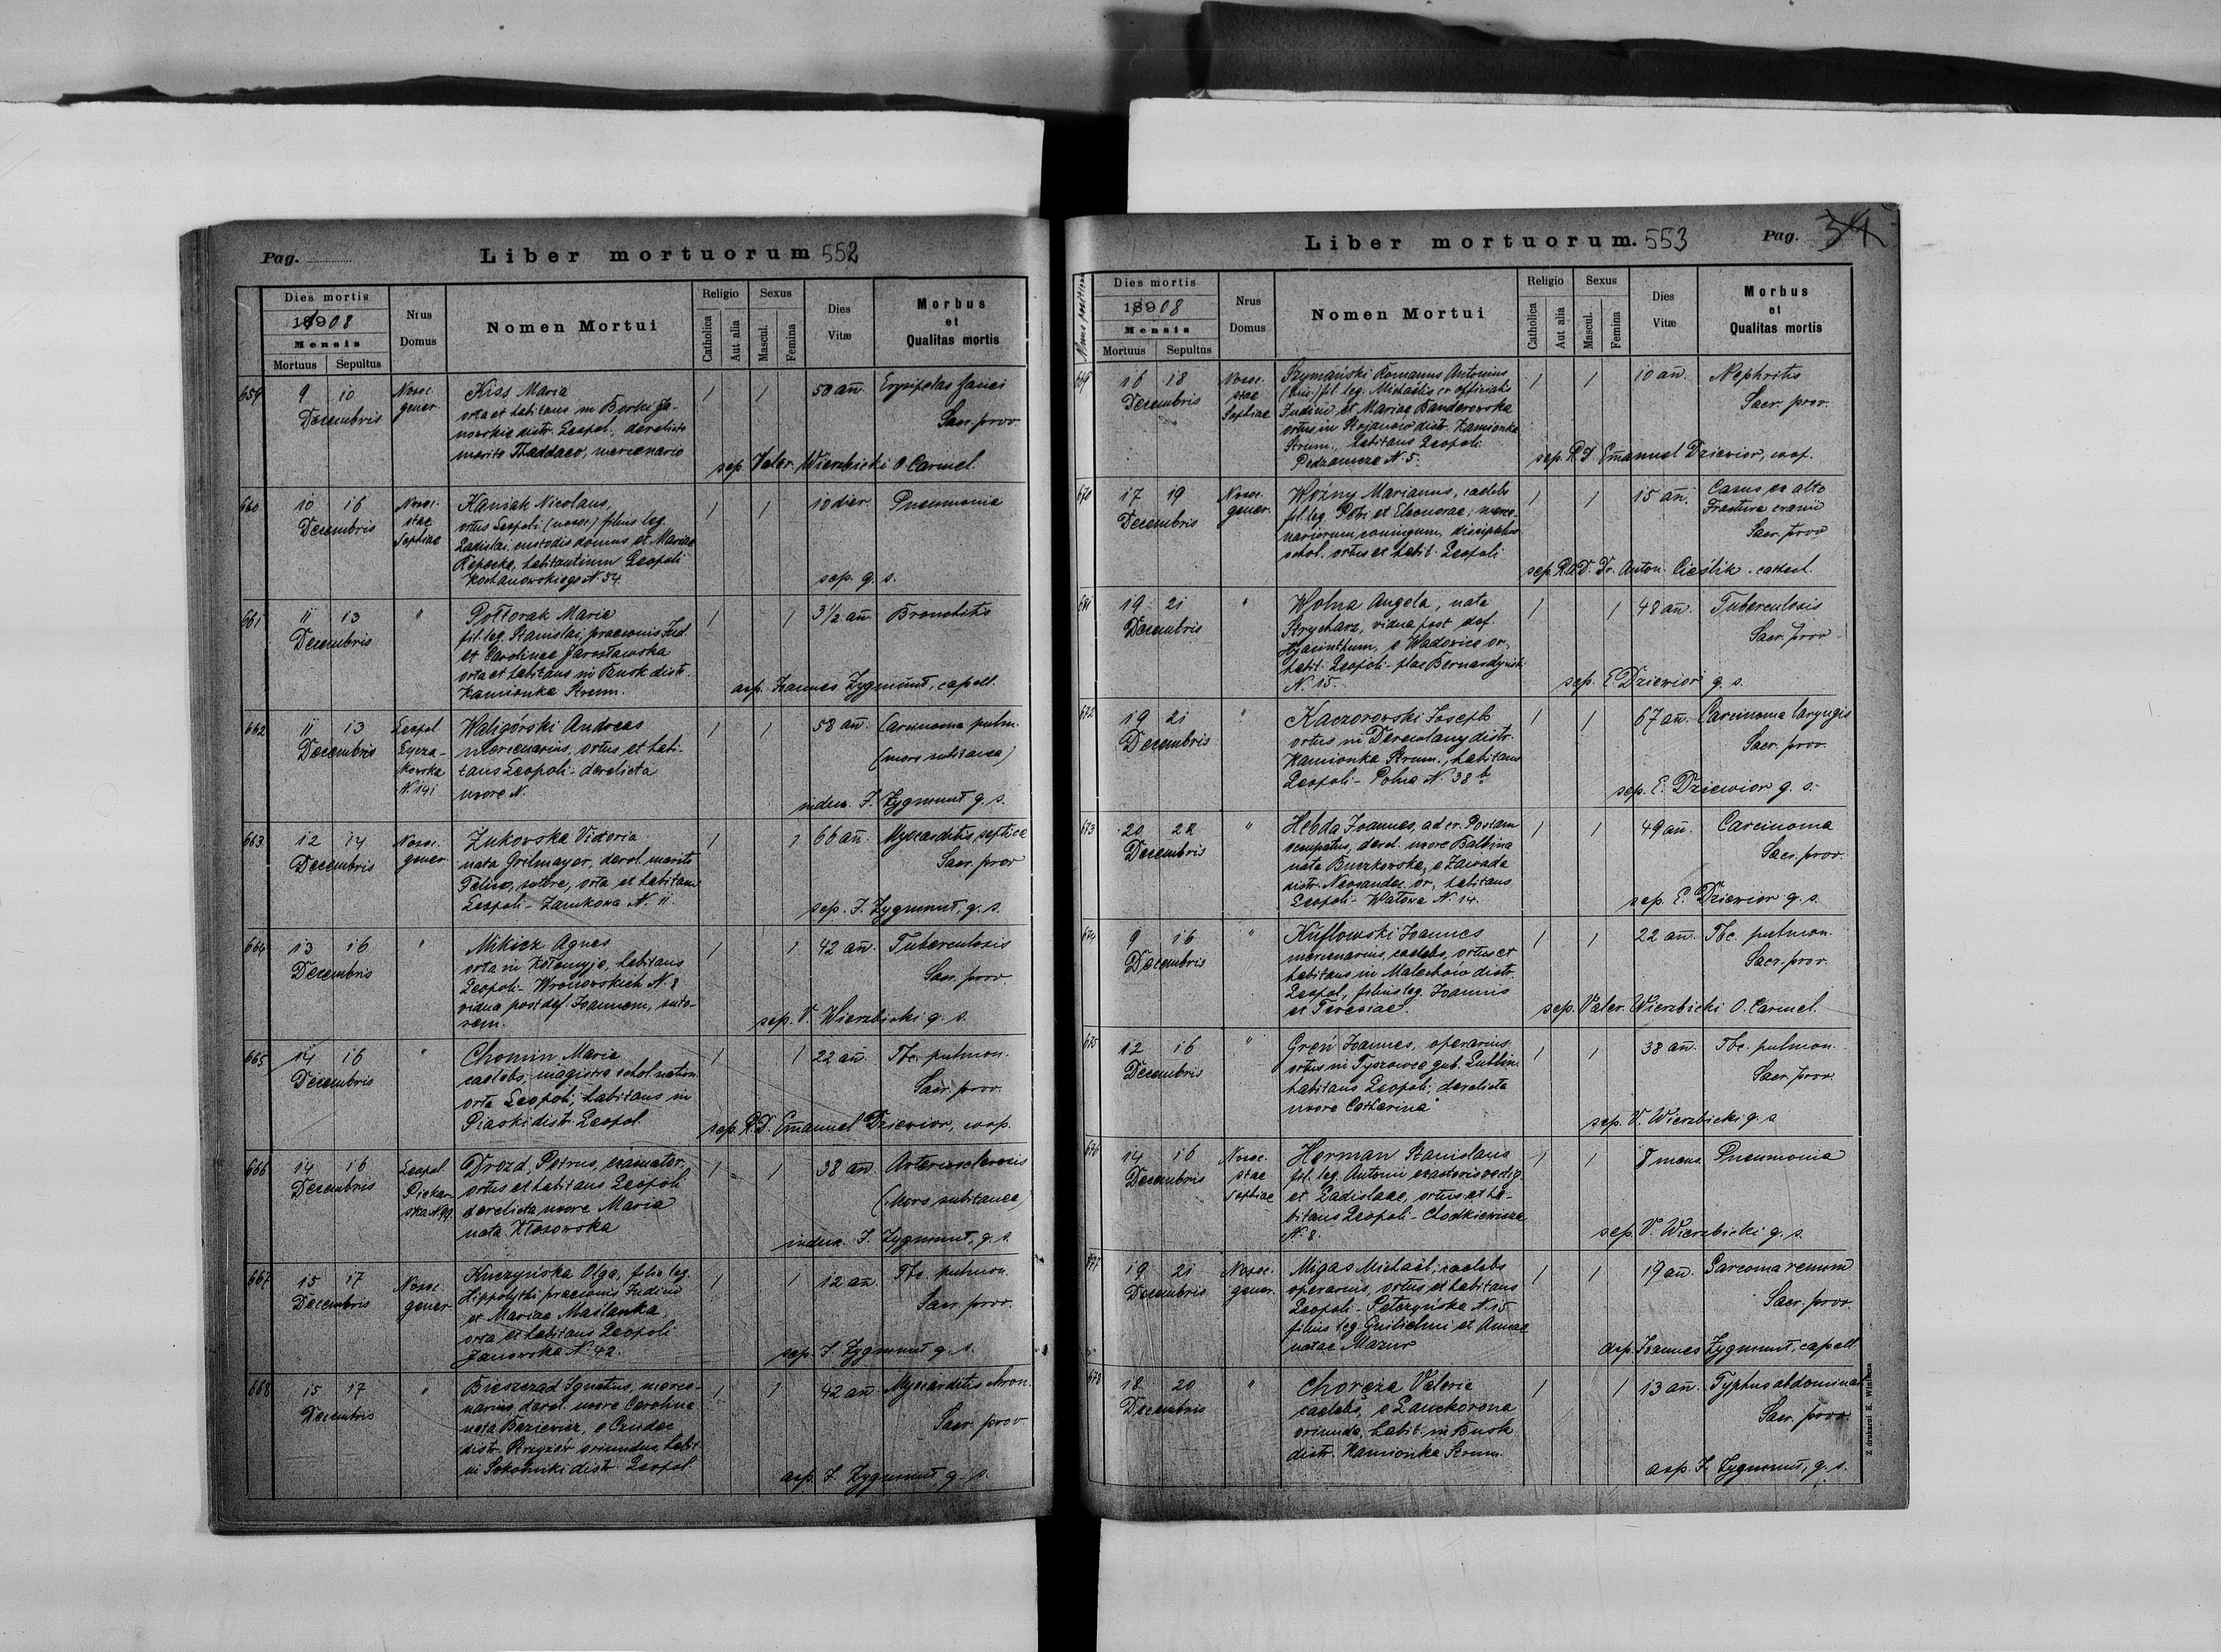 Pag.
Liber mortuorum 552
Dies mortis
1908
Mensis
Mortuus Sepultus
Nrus Domus
Nomen Mortui
Religio
Catholica
Aut alia
Sexus
Mascul.
Femina
Dies Vitæ
Morbus
et
Qualitas mortis
659
9 10
Decembris
Nosoc.
gener
Kiss Maria
orta et habitans in Borki Ja-
nowskie distr. Leopol. derelicto
marito Thaddaeo, mercenario
1 1
50 añ.
Erysipelas faciei
Sacr. prov.
sep. Valer. Wierzbicki O. Carmel.
660
10 16
Decembris
Nosoc.
stae
Sophiae
Kaniak Nicolaus,
ortus Leopoli (nosoc.) filius leg.
Ladislai, custodis domus et Mariae
Repecka, habitantium Leopoli
Kochanowskiego N. 54
1 1
10 dier.
Pneumonia
sep. q. s.
661
11 13
Decembris
"
Połtorak Maria
fil. leg. Stanislai, praeconis Jud.
et Carolinae Jarosławska
orta et habitans in Busk distr.
Kamionka Strum.
1 1
3 1/2 añ.
Bronchitis
asp. Joannes Zygmunt, capell.
662
11 13
Decembris
Leopol
Łycza-
kowska
N. 141
Waligórski Andreas
mercenarius, ortus et habi-
tans Leopoli - derelicta
uxore N.
1 1
58 añ.
Carcinoma pulm.
(mors subitanea)
indux. J. Zygmunt q. s.
663
12 14
Decembris
Nosoc.
gener
Żukowska Victoria
nata Grilmayer, derel. marito
Felice, sutore, orta et habitans
Leopoli - Zamkowa N. 11
1 1
66 añ.
Myocarditis septica
Sacr. prov
sep. J. Zygmunt, q. s.
664
13 16
Decembris
"
Mikicz Agnes
orta in Kołomyja, habitans
Leopoli - Wronowskich N. 8
vidua post def. Joannem, suto-
rem.
1 1
42 añ.
Tuberculosis
Sacr. prov.
sep. V. Wierzbicki q. s.
665
14 16
Decembris
"
Chomin Maria
caelebs, magistra schol. nation.
orta Leopoli, habitans in
Piaski distr. Leopol.
1 1
22 añ.
Tbc. pulmon.
Sacr. prov.
sep. R. D. Emanuel Dziewior, coop.
666
14 16
Decembris
Leopol.
Piekar
ska N. 99
Drozd Petrus, examator,
ortus et habitans Leopoli
derelicta uxore Maria
nata Kłosowska
1 1
38 añ
Arteriosclerosis
(Mors subitanea)
indux. J. Zygmunt, q. s.
667
15 17
Decembris
Nosoc.
gener
Kuczyńska Olga, filia leg.
Hippolythi praeconis Judicii
et Mariae Maślanka,
orta et habitans Leopoli
Janowska N. 42.
1 1
12 añ.
Tbc. pulmon.
Sacr. prov.
sep. J. Zygmunt q. s.
668
15 17
Decembris
"
Bieszczad Ignatius, merce-
narius, derel. uxore Carolina
nata Baziewicz, e Czudec
distr. Strzyżów oriundus, habit.
in Sokolniki distr. Leopol.
1 1
42 añ
Myocarditis chron.
Sacr. prov
asp. J. Zygmunt, q. s.
Liber mortuorum. 553
Pag. 34
Nrus positionis
Dies mortis
1908
Mensis
Mortuus Sepultus
Nrus Domus
Nomen Mortui
Religio
Catholica
Aut alia
Sexus
Mascul.
Femina
Dies Vitæ
Morbus
et
Qualitas mortis
669
16 18
Decembris
Nosoc.
stae
Sophiae
Szymański Romanus Antonius
(bin.) fil. leg. Michaëlis ex officialis
Judicii et Mariae Banderowska
ortus in Stojanow distr. Kamionka
Strum., habitans Leopoli
Podzamcze N. 5.
1 1
10 añ.
Nephritis
Sacr. prov.
sep. R. D. Emanuel Dziewior, coop.
670
17 19
Decembris
Nosoc.
gener.
Woźny Marianus, caelebs
fil. leg. Petri et Eleonorae, merce-
nariorum coniugum, discipulus
schol. ortus et habit. Leopoli
1 1
15 añ.
Casus ex alto
Fractura cranii
Sacr. prov
sep. R. D. Dr. Anton. Cieślik. catech.
671
19 21
Decembris
"
Wolna Angela, nata
Strycharz, vidua post def.
Hyacinthum, e Wadowice or.,
habit. Leopoli - plac Bernardyński
N. 15.
1 1
48 añ.
Tuberculosis
Sacr. prov
sep. E. Dziewior q. s.
672
19 21
Decembris
"
Kaczorowski Joseph
ortus in Derewlany distr.
Kamionka Strum., habitans
Leopoli - Polna N. 38 b
1 1
67 añ.
Carcinoma laryngis
Sacr. prov.
sep. E. Dziewior q. s.
673
20 22
Decembris
"
Hebda Joannes, ad er. Portam
occupatus, derel. uxore Balbina
nata Buczkowska, e Zawada
distr. Neosandec. or., habitans
Leopoli - Wałowa N. 14.
1 1
49 añ.
Carcinoma
Sacr. prov.
sep. E. Dziewior q. s.
674
9 16
Decembris
"
Kuflowski Joannes
mercenarius, caelebs, ortus et
habitans in Malechów distr.
Leopol, filius leg. Joannis
et Teresiae.
1 1
22 añ.
Tbc. pulmon.
Sacr. prov.
sep. Valer. Wierzbicki O. Carmel.
675
12 16
Decembris
"
Greń Joannes, operarius
ortus in Tyszowce gub. Lublin.
habitans Leopoli; derelicta
uxore Catharina
1 1
38 añ.
Tbc. pulmon.
Sacr. prov.
sep. V. Wierzbicki q. s
676
14 16
Decembris
Nosoc.
stae
Sophiae
Herman Stanislaus
fil. leg. Antonii exactoris vectig.
et Ladislaae, ortus et ha-
bitans Leopoli - Chodkiewicza
N. 8.
1 1
7 mens.
Pneumonia
sep. V. Wierzbicki q. s.
677
19 21
Decembris
Nosoc.
gener.
Migas Michaël, caelebs
operarius, ortus et habitans
Leopoli - Pełczyńska N. 15
filius leg. Guilielmi et Annae
natae Mazur
1 1
19 añ.
Sarcoma renum
Sacr. prov.
asp. Joannes Zygmunt, capell
678
18 20
Decembris
"
Choręża Valeria
caelebs, e Lanckorona
oriunda, habit. in Busk
distr. Kamionka Strum.
1 1
13 añ.
Typhus abdominal
Sacr. prov.
asp. J. Zygmunt, q. s.
Z drukarni E. Winiarza